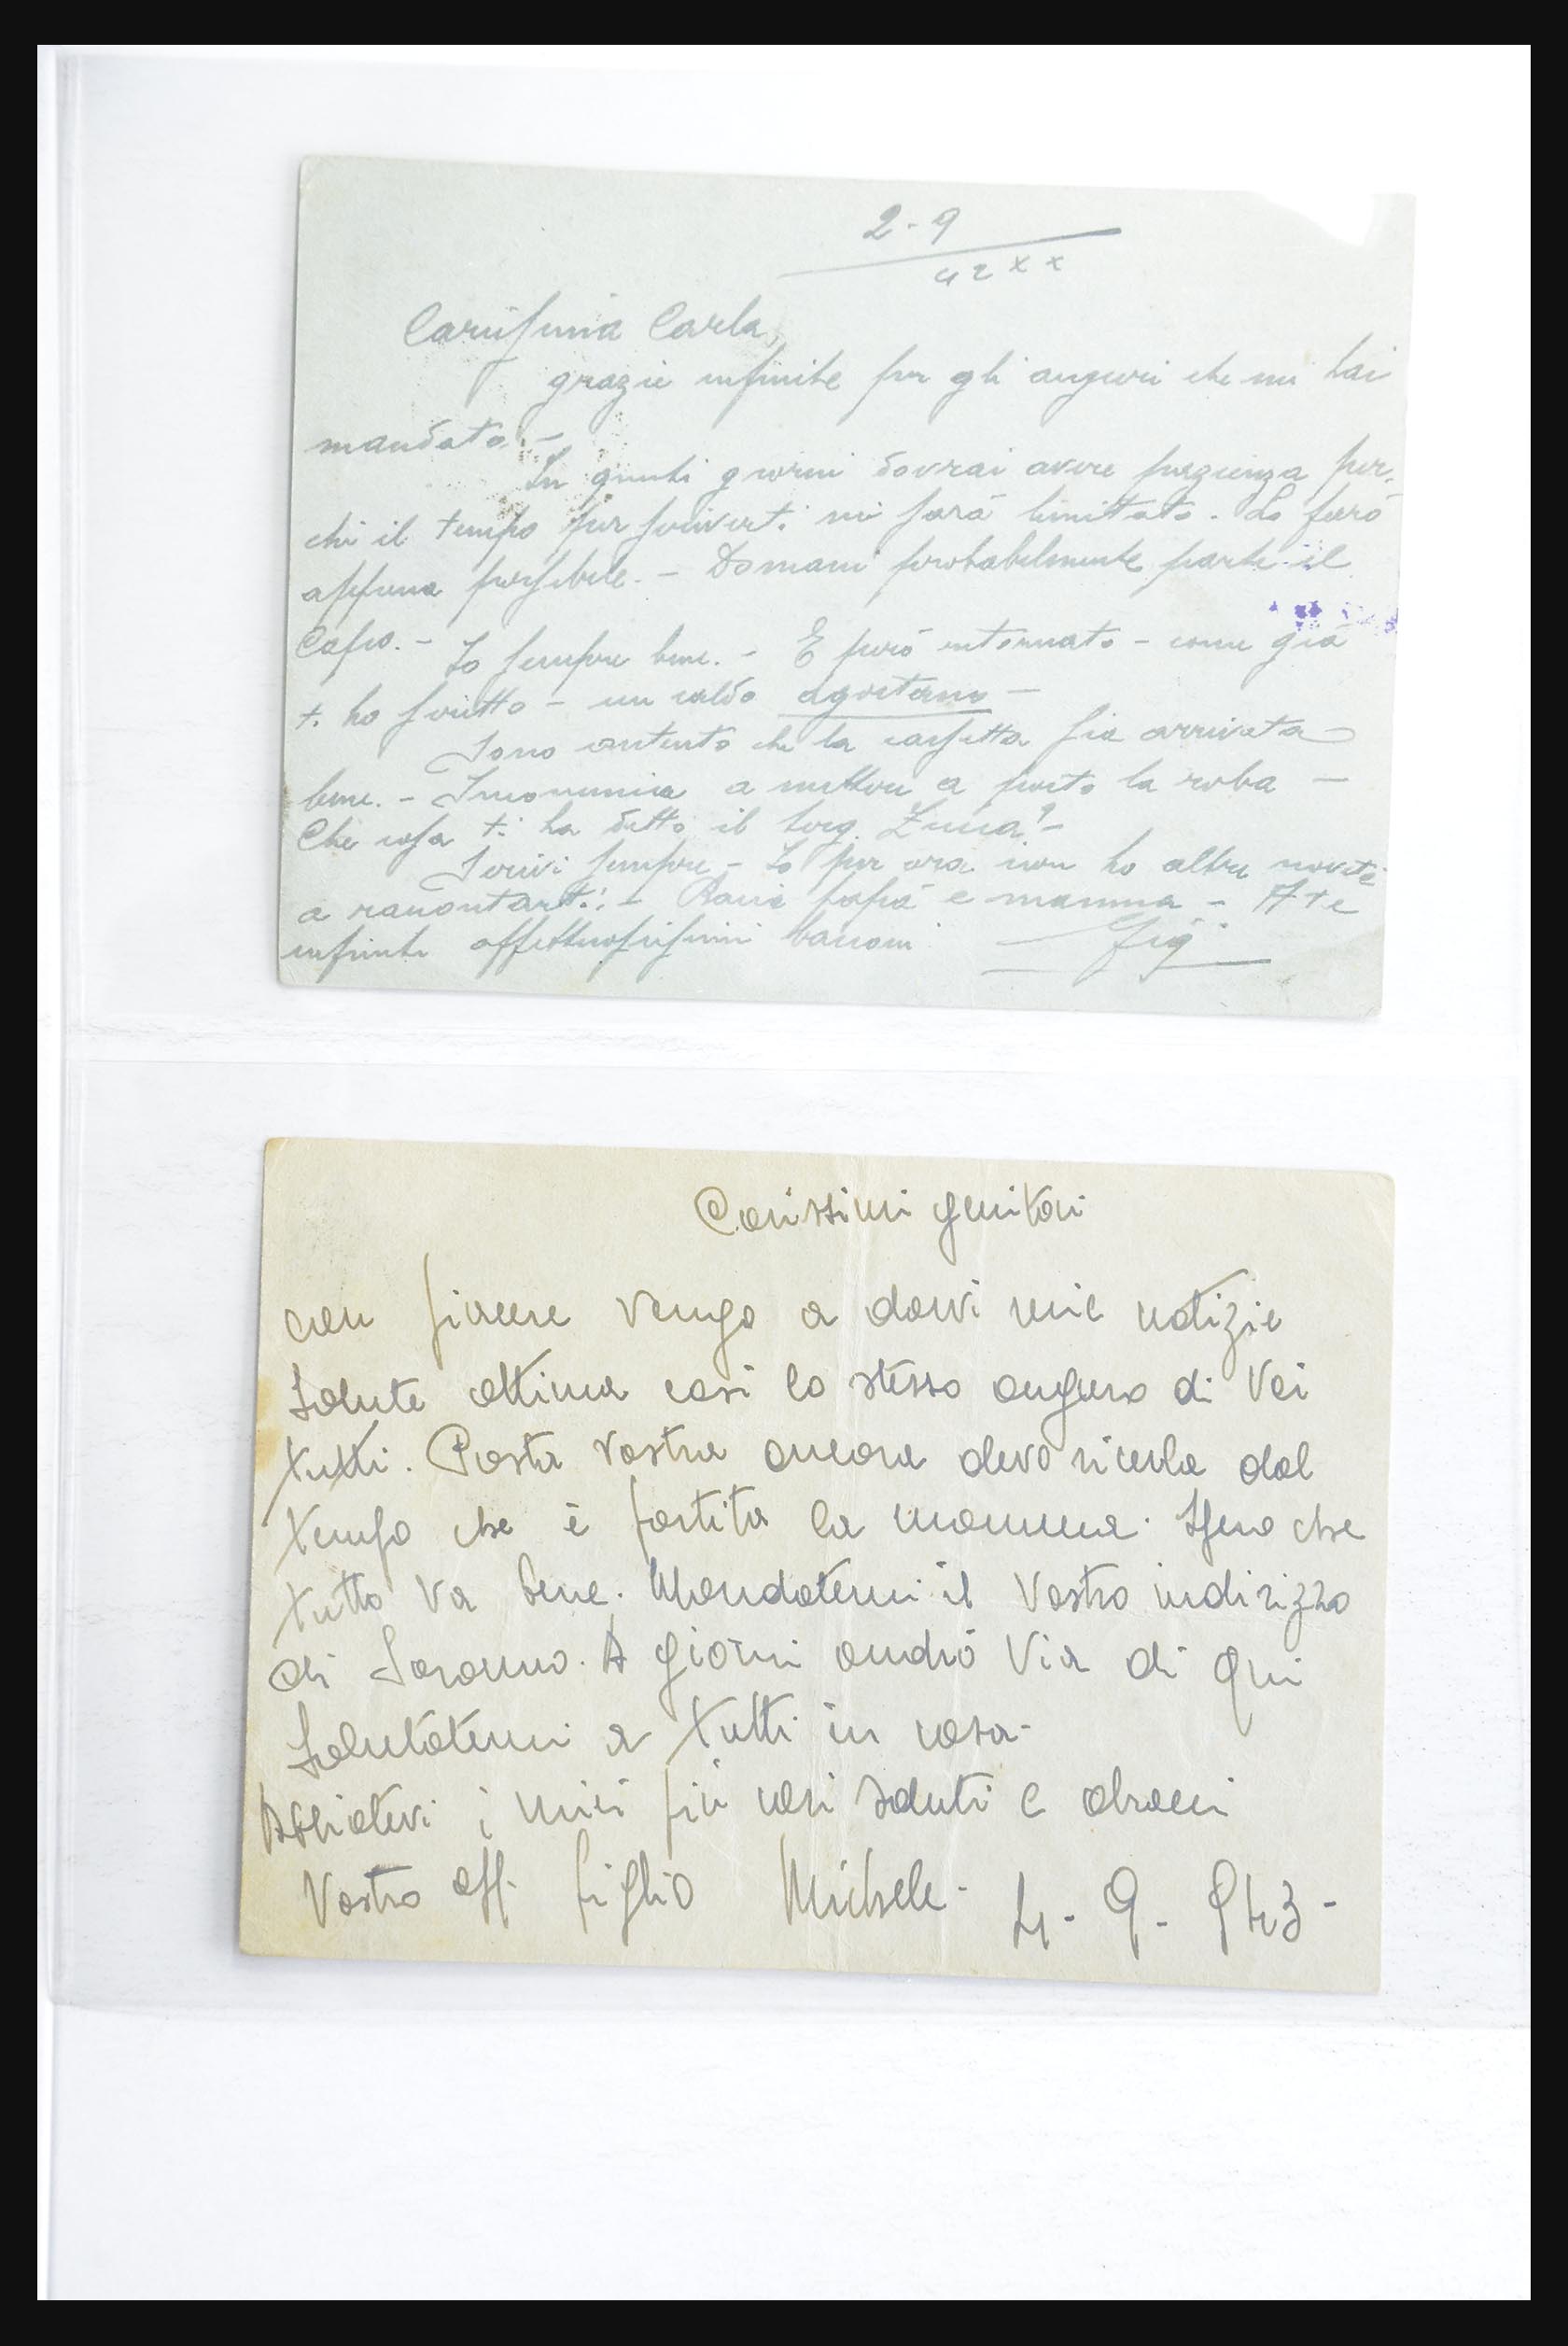 2-9
42 XX
Carissima Carla,
grazie infinite per gli auguri che mi hai
mandato. -
In questi giorni dovrai avere pazienza per-
chè il tempo per scriverti mi sarà limittato. Lo farò
appena possibile. - Domani probabilmente parte il
Capo. - Io sempre bene. - E però ritornato - come già
ti ho scritto - un caldo agostano -
Sono contento che la cassetta sia arrivata
bene. - Incomincia a mettere a posto la roba -
Che cosa ti ha detto il ?-
Scrivi sempre - Io per ora non ho altre novità
a raccontarti: - Baci papà e mamma - A te
infiniti affettuosissimi bacioni
Carissimi genitori
con piacere vengo a darvi mie notizie
Salute ottima così lo stesso auguro di Voi
tutti. Posta vostra ancora devo riceverla dal
tempo che è partita la mamma. Spero che
tutto va bene. Mandatemi il Vostro indirizzo
di. A giorni andrò Via di qui
Salutatemi a tutti in casa-
i miei più cari saluti e abracci
Vostro aff. figlio Michele- 4-9-943-